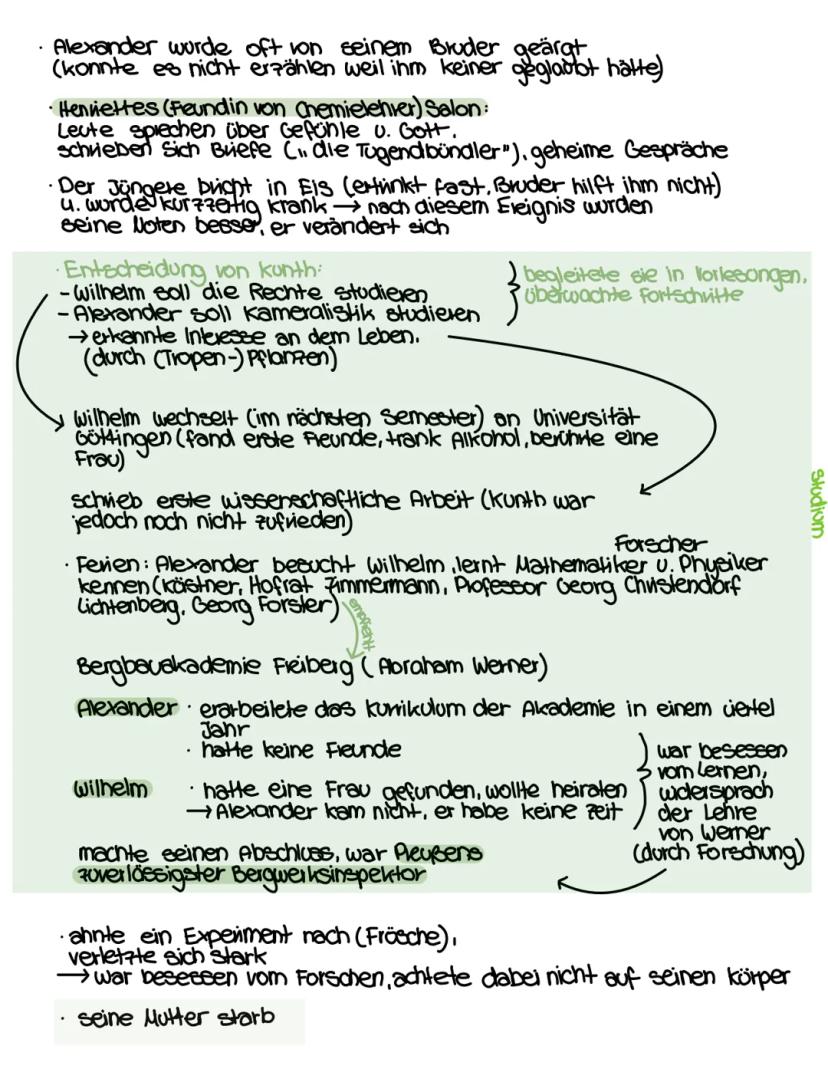 · Alexander wurde oft von seinem Bruder geärgt
(konnte es nicht erzählen weil ihm keiner geglaubt hätte)
· Henriettes (Feundin von Chemielehrer) Salon:
Leute sprechen über Gefühle u. Gott,
schrieben sich Briefe („die Tugendbündler"), geheime Gespräche
· Der Jüngere bricht in Eis (ertrinkt fast, Bruder hilft ihm nicht)
u. wurde kurzzeitig krank → nach diesem Ereignis wurden
seine Noten besser, er verändert sich
· Entscheidung von Kunth:
- Wilhelm soll die Rechte studieren
- Alexander soll Kameralistik studieren
→ erkannte Interesse an dem Leben.
(durch (Tropen-) Pflanzen)
begleitete sie in Vorlesungen,
überwachte Fortschritte
Wilhelm wechselt (im nächsten Semester) an Universität
Göttingen (fand erste Freunde, trank Alkohol, berührte eine
Frau)
schrieb erste wissenschaftliche Arbeit (Kunth war
jedoch noch nicht zufrieden)
Studium
Forscher
· Ferien: Alexander besucht Wilhelm, lernt Mathematiker u. Physiker
kennen (Kästner, Hofrat Zimmermann, Professor Georg Christendorf
Lichtenberg, Georg Forster)
empfiehlt
Bergbauakademie Freiberg (Abraham Werner)
Alexander · erarbeitete das Kurrikulum der Akademie in einem viertel
Jahr
· hatte keine Freunde
Wilhelm · hatte eine Frau gefunden, wollte heiraten
→ Alexander kam nicht, er habe keine Zeit
war besessen
vom Lernen,
widersprach
der Lehre
von Werner
(durch Forschung)
machte seinen Abschluss, war Preußens
zuverlässigster Bergwerksinspektor
· ahnte ein Experiment nach (Frösche),
verletzte sich stark
→ war besessen vom Forschen, achtete dabei nicht auf seinen Körper
· seine Mutter starb